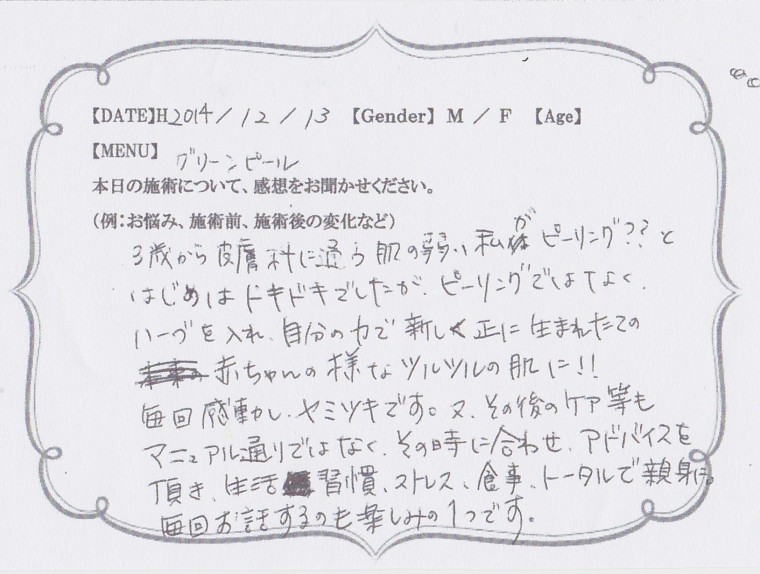 【DATE】H2014/12/13 【Gender】 M / F 【Age】
【MENU】 グリーンピール
本日の施術について、感想をお聞かせください。
(例：お悩み、施術前、施術後の変化など)
3歳から皮膚科に通う肌の弱い私がピーリング??と
はじめはドキドキでしたが、ピーリングではなく、
ハーブを入れ、自分の力で新しく正に生まれたての
赤ちゃんの様なツルツルの肌に!!
毎回感動し、ヤミツキです。又、その後のケア等も
マニュアル通りではなく、その時に合わせ、アドバイスを
頂き、生活習慣、ストレス、食事、トータルで親身に。
毎回お話するのも楽しみの1つです。